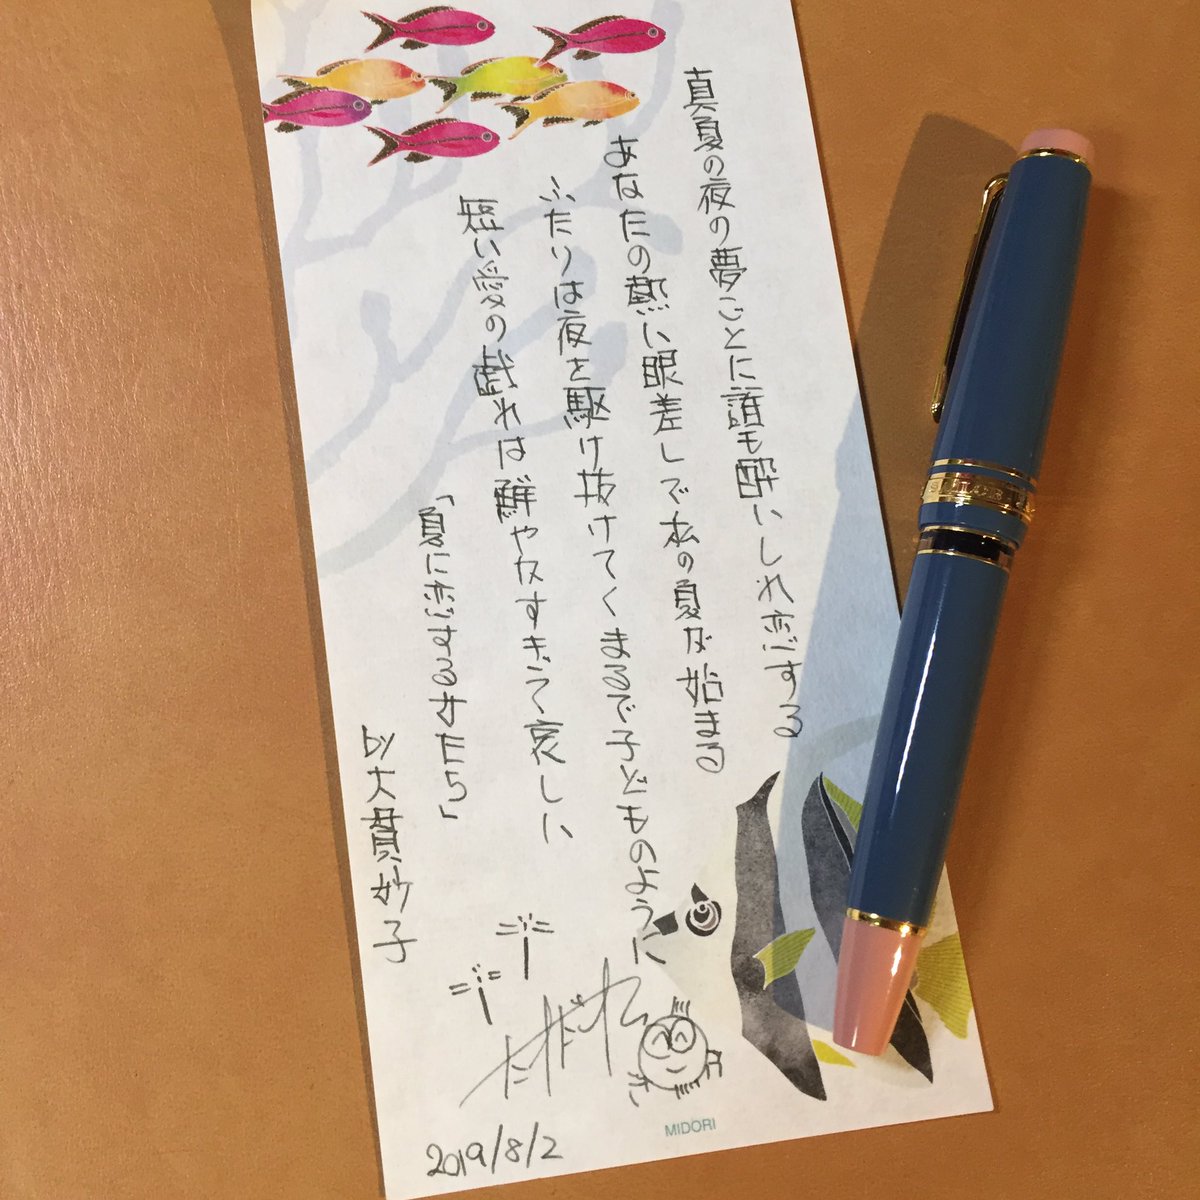 真夏の夜の夢ごとに誰も酔いしれ恋する
あなたの熱い眼差しで私の夏が始まる
ふたりは夜を駆け抜けてくまるで子どものように
短い愛の戯れは鮮やかすぎて哀しい
「夏に恋する女たち」
by大貫妙子
2019/8/2
MIDORI
SAILOR